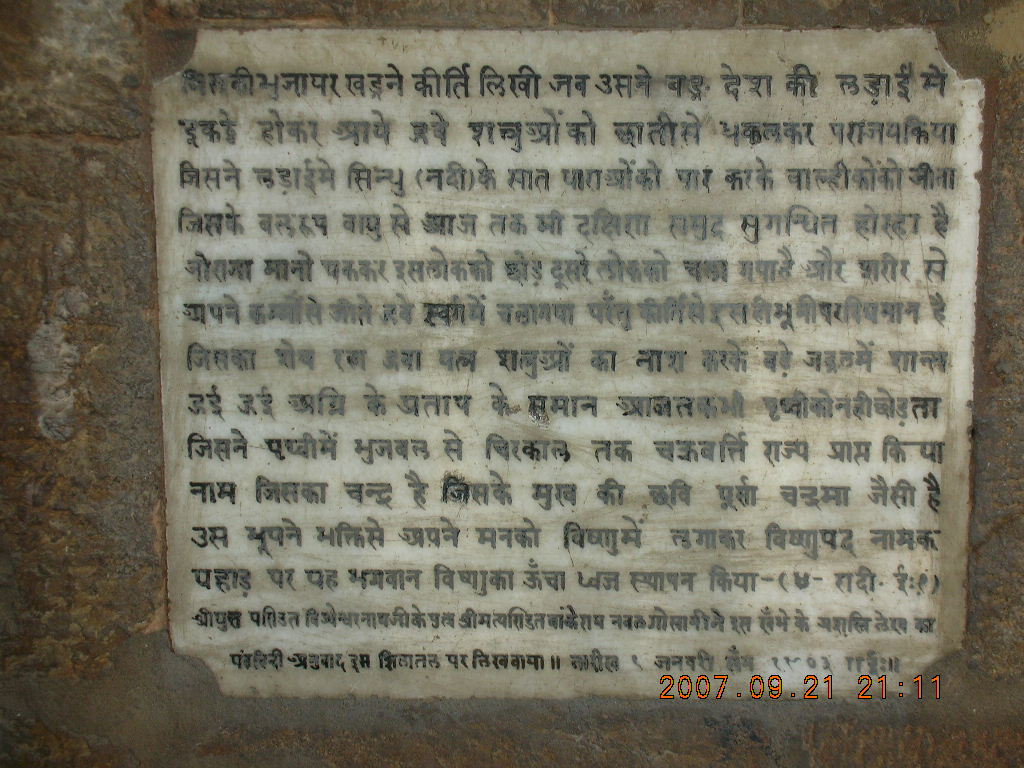 जिसकी भुजापर खड्गने कीर्ति लिखी जब उसने बङ्ग देश की लड़ाई में
इकट्ठे होकर आये हुवे शत्रुओं को छातीसे धकेलकर पराजयकिया
जिसने लड़ाईमे सिन्धु (नदी)के सात धाराओंको पार करके वाल्हीकोंको जीता
जिसके बलरूप वायु से आज तक भी दक्षिण समुद्र सुगन्धित होरहा है
जोराजा मानो थककर इसलोकको छोड़ दूसरे लोकको चला गयाहै और शरीर से
अपने कर्म्मोसे जीते हुवे स्वर्गमें चलागया परंतु कीर्तिसे इसही भूमीपरविद्यमान है
जिसका शेष रहा हुवा यत्न शत्रुओं का नाश करके बड़े जङ्गलमें शान्त
हुई हुई अग्नि के प्रताप के समान आजतकभी पृथ्वीकोनहीछोड़ता
जिसने पृथ्वीमें भुजबल से चिरकाल तक चक्रवर्त्ति राज्य प्राप्त किया
नाम जिसका चन्द्र है जिसके मुख की छवि पूर्ण चन्द्रमा जैसी है
उस भूपने भक्तिसे अपने मनको विष्णुमें लगाकर विष्णुपद नामक
पहाड़ पर यह भगवान विष्णुका ऊँचा ध्वज स्थापन किया-(४- शदी ई:१)
श्रीयुत पण्डित विश्वेश्वरनाथजीके पुत्र श्रीमत्पण्डितबांकेराय नवलगोस्वामीने इस खँभे के प्रशस्ति लेख का
यहहिन्दी अनुवाद इस शिलातल पर लिखवाया॥ तारीख १ जनवरी सँन
2007.09.21 21:11